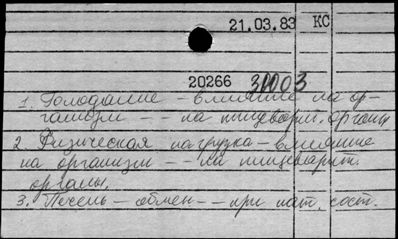 21.03.83 КС
20266 31003
1. Голодание – влияние на ор-
ганизм – – на пищеварит. органы
2. Физическая нагрузка – влияние
на организм – – на пищеварит.
органы.
3. Печень – обмен – – при пат. сост.